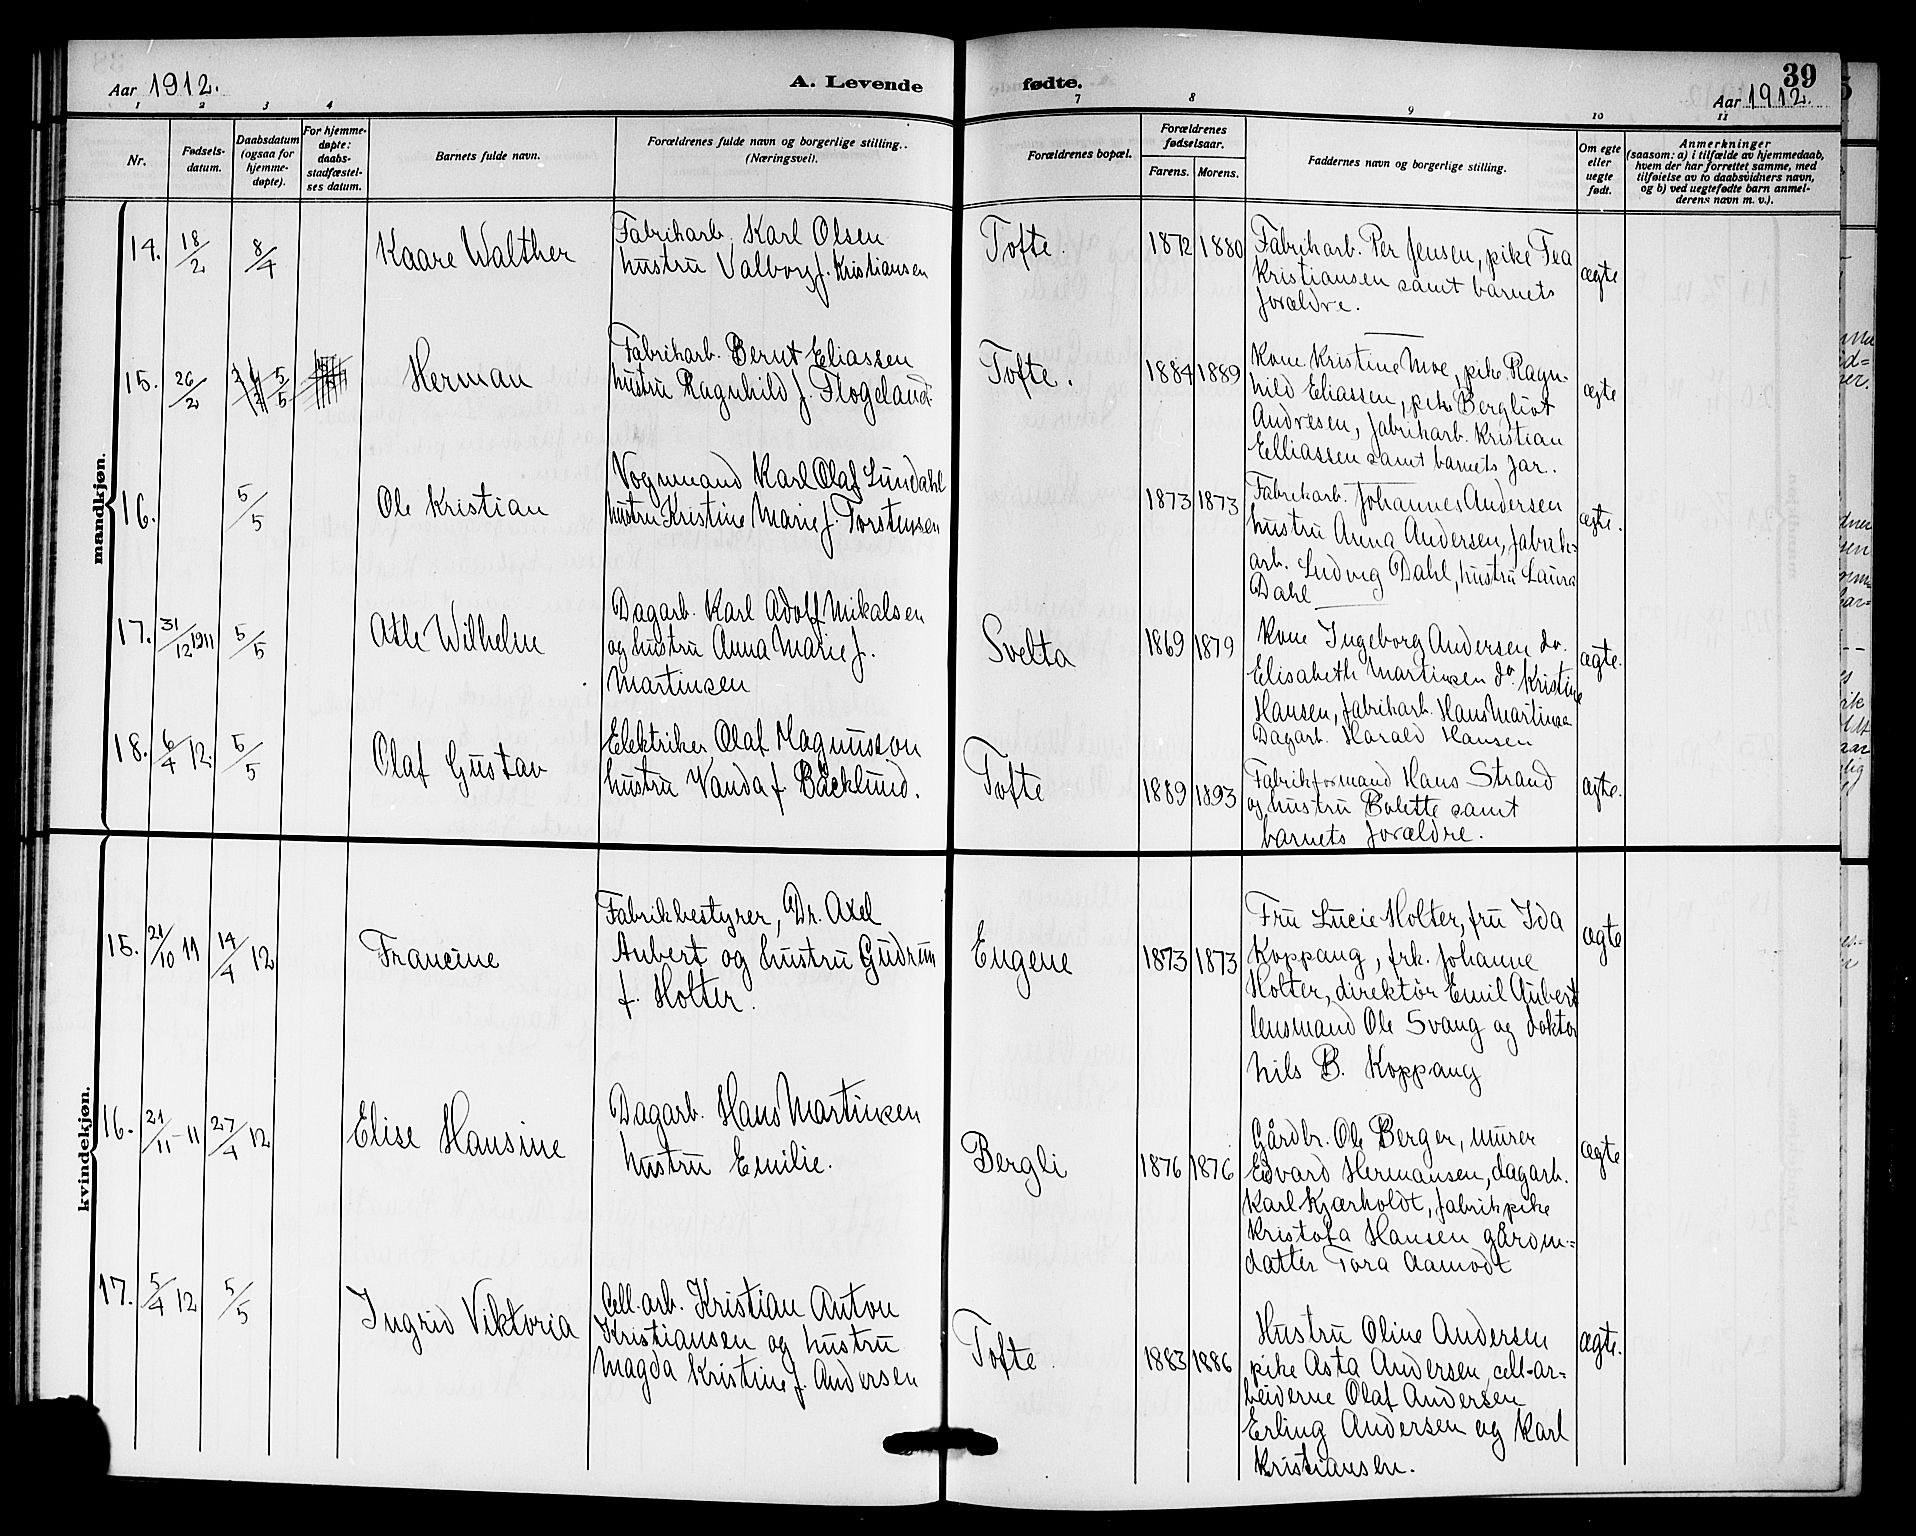 Aar 1912.
A. Levende fødte.
39
Aar 1912.
1 2 3 4 7 8 9 10 11
Nr.
Fødsels-
datum.
Daabsdatum
(ogsaa for
hjemme-
døpte).
For hjemme-
døpte:
daabs-
stadfæstel-
ses datum.
Barnets fulde navn.
Forældrenes fulde navn og borgerlige stilling.
(Næringsvei).
Forældrenes bopæl.
Forældrenes
fødselsaar.
Farens. Morens.
Faddernes navn og borgerlige stilling.
Om egte
eller
uegte
født.
Anmerkninger
(saasom: a) i tilfælde av hjemmedaab,
hvem der har forrettet samme, med
tilføielse av to daabsvidners navn,
og b) ved uegtefødte barn anmel-
derens navn m. v.).
mandkjøn.
14. 18/2 8/4 Kaare Walther
Fabrikarb. Karl Olsen
hustru Valborg f. Kristiansen
Tofte. 1872 1880
Fabrikarb. Per Jensen, pike Tea
Kristiansen samt barnets
forældre.
ægte
15. 26/2 5/5 Herman
Fabrikarb. Bernt Eliassen
hustru Ragnhild f. Flogeland
Tofte. 1884 1889
Kone Kristine Moe, pike Ragn-
hild Eliassen, pike Bergliot
Andresen, fabrikarb. Kristian
Elliassen samt barnets far.
ægte
16. 5/5 Ole Kristian
Vognmand Karl Olaf Lundahl
hustru Kristine Marie f. Torstensen
1873 1873
Fabrikarb. Johannes Andersen
hustru Anna Andersen, fabrik-
arb. Ludvig Dahl, hustru Laura
Dahl
ægte.
17. 31/12 1911 5/5 Atle Wilhelm
Dagarb. Karl Adolf Mikalsen
og hustru Anna Marie f.
Martinsen
Svelta 1869 1879
Kone Ingeborg Andersen do.
Elisabeth Martinsen do. Kristine
Hansen, fabrikarb. Hans Martinsen
Dagarb. Harald Hansen
ægte.
18. 6/4 12. 5/5 Olaf Gustav
Elektriker Olaf Magnusson
hustru Vanda f. Bäcklund.
Tofte 1889 1893
Fabrikformand Hans Strand
og hustru Bolette samt
barnets forældre.
ægte.
kvindekjøn.
15. 21/10 11 14/4 12 Francine
Fabrikbestyrer, Dr. Axel
Aubert og hustru Gudrun
f. Holter.
Eugene 1873 1873
Fru Lucie Holter, fru Ida
Koppang, frk. Johanne
Holter, direktör Emil Aubert
lensmand Ole Svang og doktor
Nils B. Koppang
ægte
16. 21/11-11 27/4 12 Elise Hansine
Dagarb. Hans Martinsen
hustru Emilie.
Bergli 1876 1876
Gårdbr. Ole Berger, murer
Edvard Hermansen, dagarb.
Karl Kjærholdt, fabrikpike
Kristofa Hansen gårdm=
datter Tora Aamodt
ægte
17. 5/4 12 5/5 Ingrid Viktoria
Cell. arb. Kristian Anton
Kristiansen og hustru
Magda Kristine f. Andersen
Tofte 1883 1886
Hustru Oline Andersen
pike Asta Andersen, cell-ar-
beiderne Olaf Andersen
Erling Andersen og Karl
Kristiansen.
ægte.